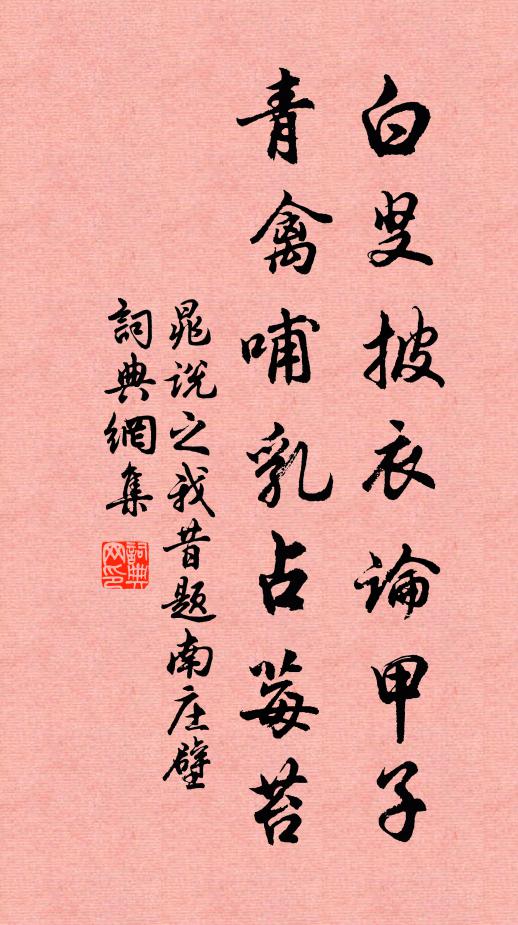 白叟披衣論甲子
青禽哺乳占莓苔
晁說之我昔題南庄壁
詞典網集
詞典网印